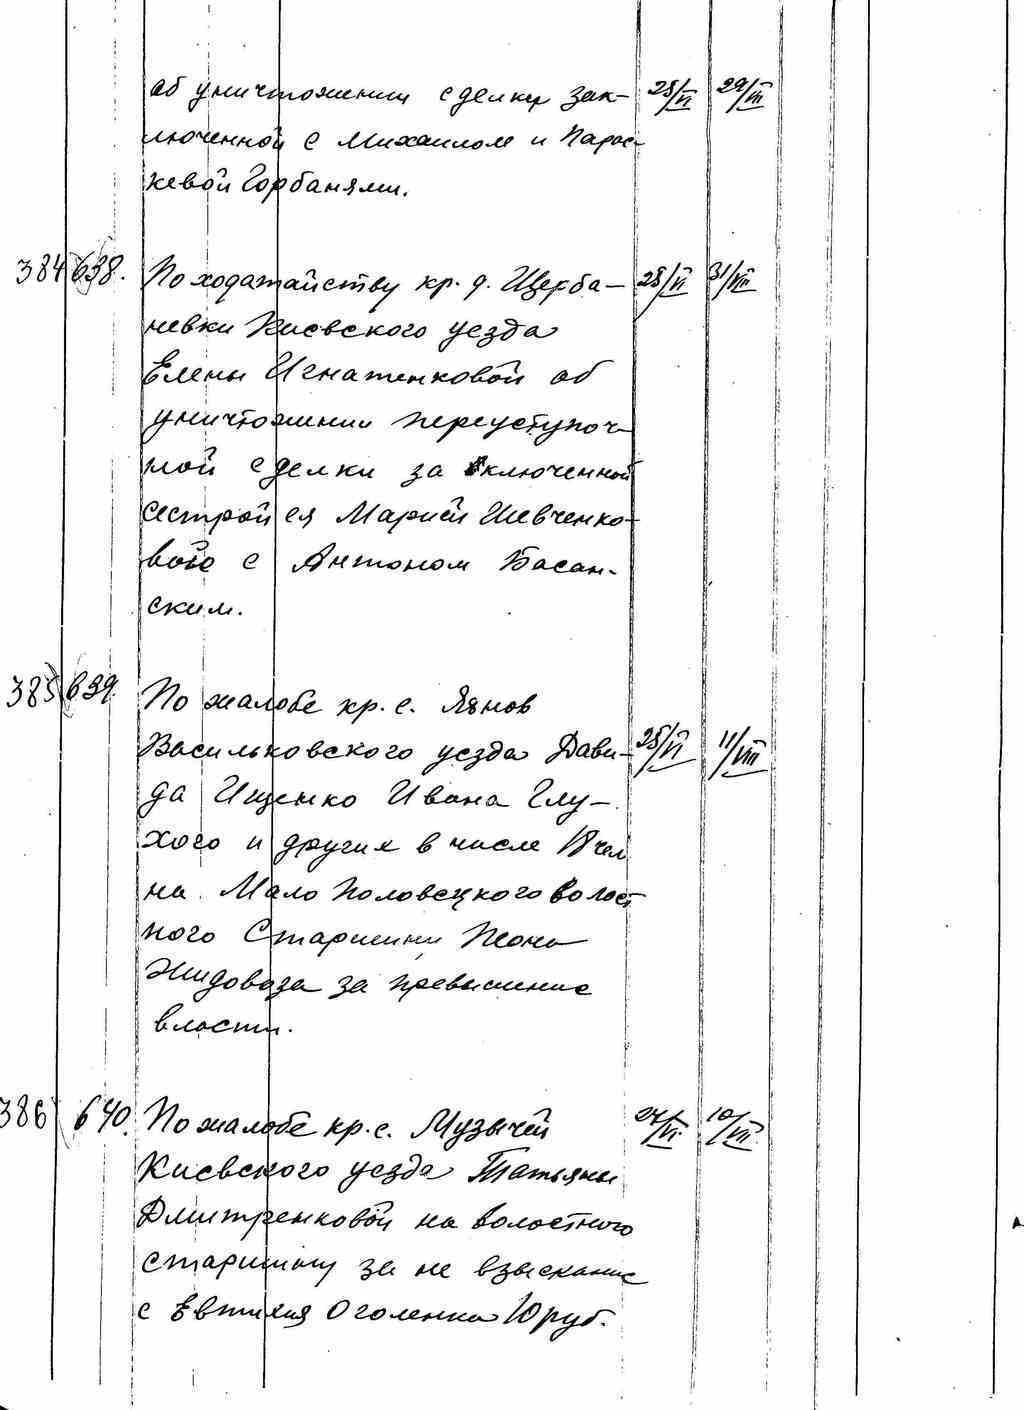 об уничтожении сделки зак- 28/VI 29/VIII
люченной с Михаилом и Парас-
кевой Горбанями.
384 638. По ходатайству кр. д. Щерба- 28/VI 31/VIII
невки Киевского уезда
Елены Игнатенковой об
уничтожении переуступоч-
ной сделки за ключенной
сестрой ея Марией Шевченко-
вою с Антоном Басан-
ским.
385 639. По жалобе кр. с. Яхнов
Васильковского уезда Дави- 28/VI 11/VIII
да Ищенко Ивана Глу-
хого и других в числе чел
на Мало Половецкого волост
ного Старшину
Жидовоза за превышение
власти.
386 640. По жалобе кр. с. Музычей
Киевского уезда Татьяны
Дмитренковой на волостного
старшину за не взыскание
с Евтихия Оголенка 10 руб.